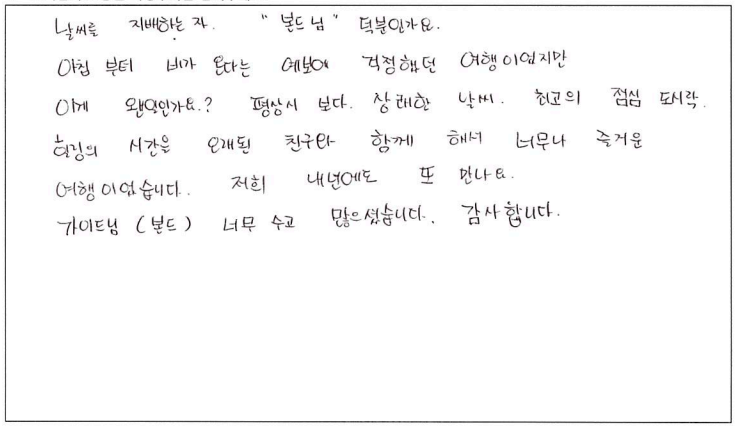 날씨를 지배하는 자. "본드님" 덕분인가요.
아침 부터 비가 온다는 예보에 걱정했던 여행이었지만
이게 왠일인가요.? 평상시 보다. 창래한 날씨. 최고의 점심 도시락.
힐링의 시간을 오래된 친구와 함께 해서 너무나 즐거운
여행이었습니다. 저희 내년에도 또 만나요.
가이드님 (본드) 너무 수고 많으셨습니다. 감사합니다.